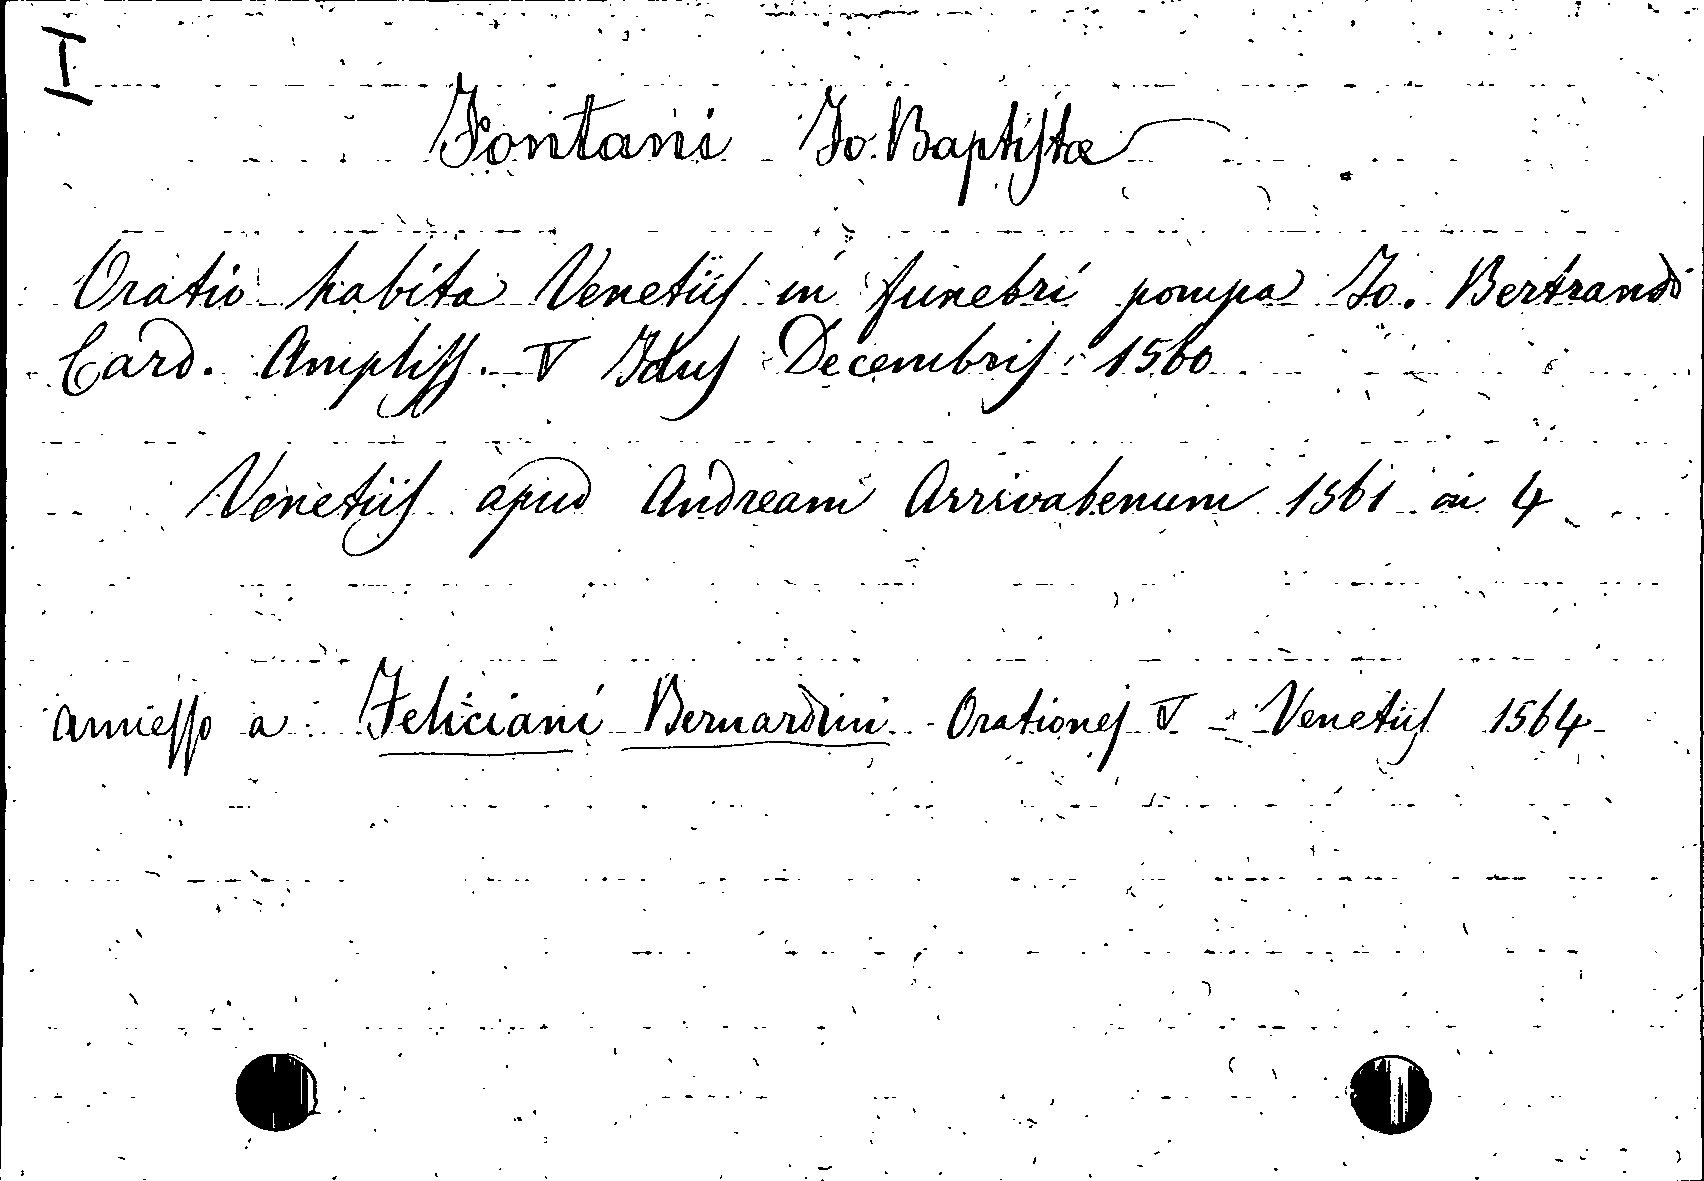 I
Fontani Jo. Baptistæ
Oratio habita Venetiis in funebri pompa Jo. Bertrandi
Card. Ampliss. V Idus Decembris 1560
Venetiis apud Andream Arrivabenum 1561 in 4
annesso a Feliciani Bernardini Orationes V - Venetiis 1564